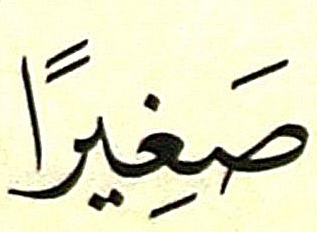 صَغِيرًا